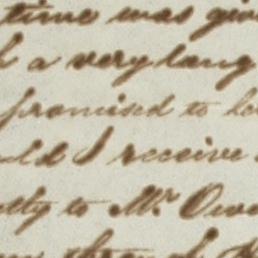 time was giv
a very long
promised to
uld I receive
lty to Mr. Owe